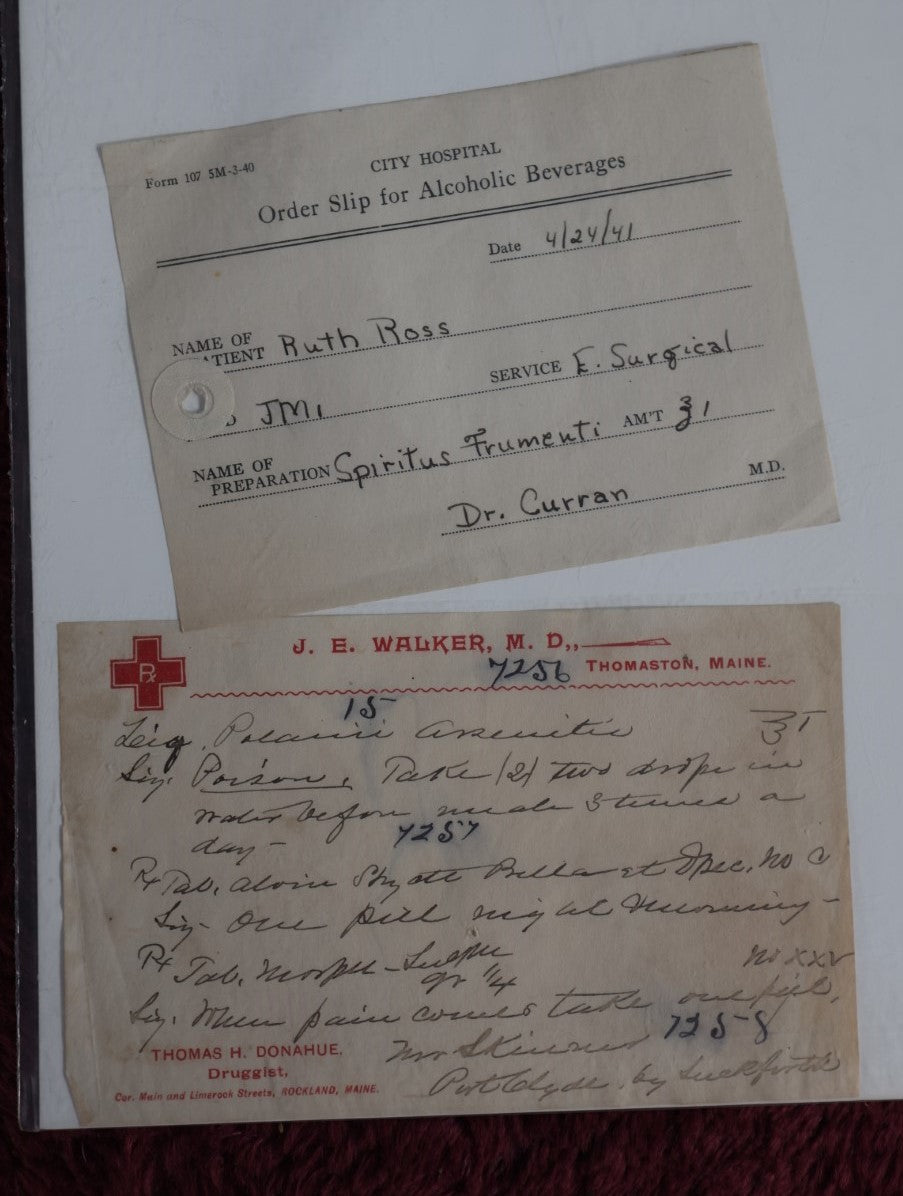 Form 107 5M-3-40
CITY HOSPITAL
Order Slip for Alcoholic Beverages
Date 4/24/41
NAME OF
TIENT Ruth Ross
JM1 SERVICE E. Surgical
NAME OF
PREPARATION Spiritus Frumenti AM'T ℨ1
Dr. Curran M.D.
J. E. WALKER, M. D.,
7256 THOMASTON, MAINE.
Rx
15
Arsenitis ℨI
Sig. Poison. Take (2) two drops in
water before meals 3 times a
day-
7257
Rx Tab. Aloin Bella et Ipec. No C
Sig- One pill night morning-
Rx Tab. Morph- Sulph No XXV
gr 1/4
Sig. When pain comes take one pill.
THOMAS H. DONAHUE, 7258
Druggist, Port Clyde by
Cor. Main and Limerock Streets, ROCKLAND, MAINE.